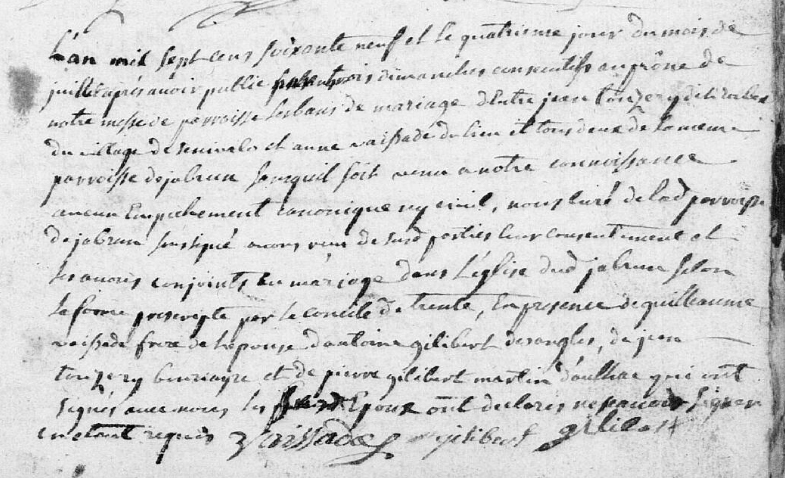 L'an mil sept cens soixante neuf et le quatrieme jour du mois de
juillet aprés avoir publié trois dimanches consecutifs au prône de
notre messe de parroisse les bans de mariage d'Entre jean touzery dit
du village de senivalos et anne vaissade du lieu et tous deux de la meme
parroisse de jabrun sans quil soit venu a notre connoissance
aucun Empechement canonique ny civil, nous curé de lad parroisse
de jabrun soussigné avons reçu de susd parties leur consentement et
les avons conjoints en mariage dans l'église dud jabrun selon
la forme prescripte par le concile de trente, En presence de guilleaume
vaissade frere de l'epouse d'antoine gilibert desangles, de jean
touzery et de pierre gilibert martin d'aulhac qui ont
signés avec nous les Epoux ont declarés ne pouvoir signer
en etant requis Vaissade gilibert gilibert